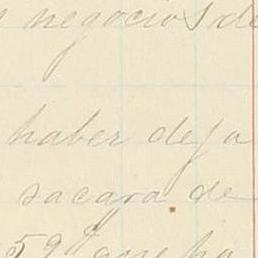 negocios de
haber deja
sacara de
59 que ha